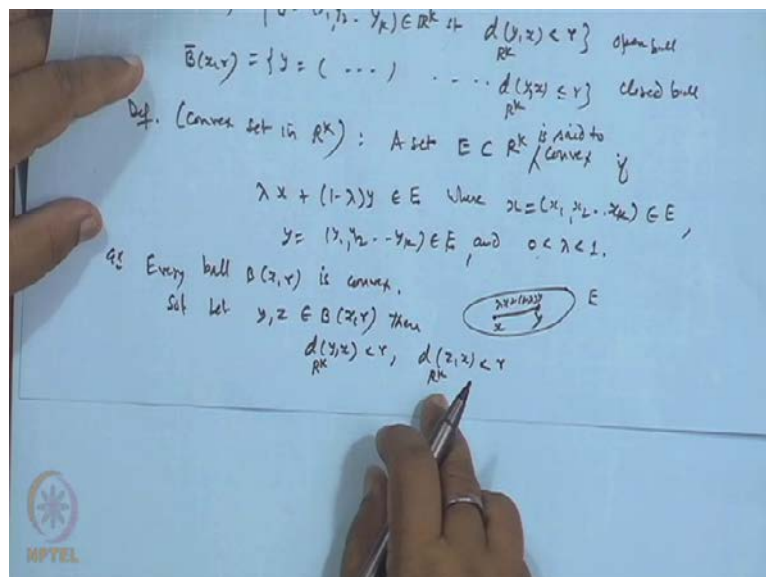 y₂ -- yₖ) ∈ ℝᴷ st d(y,x) < r } open ball
ℝᴷ
B̄(x,r) = { y = ( --- ) ---- d(y,x) ≤ r } closed ball
ℝᴷ
Def. (Convex set in Rᴷ) : A set E ⊂ Rᴷ is said to convex if
λx + (1-λ)y ∈ E where x = (x₁, x₂ .. xₖ) ∈ E,
y = (y₁, y₂ -- yₖ) ∈ E, and 0 < λ < 1.
Every ball B(x,r) is convex.
Sol Let y, z ∈ B(x,r) Then
λx+(1-λ)y E
x y
d(y,x) < r, d(z,x) < r
ℝᴷ ℝᴷ
NPTEL